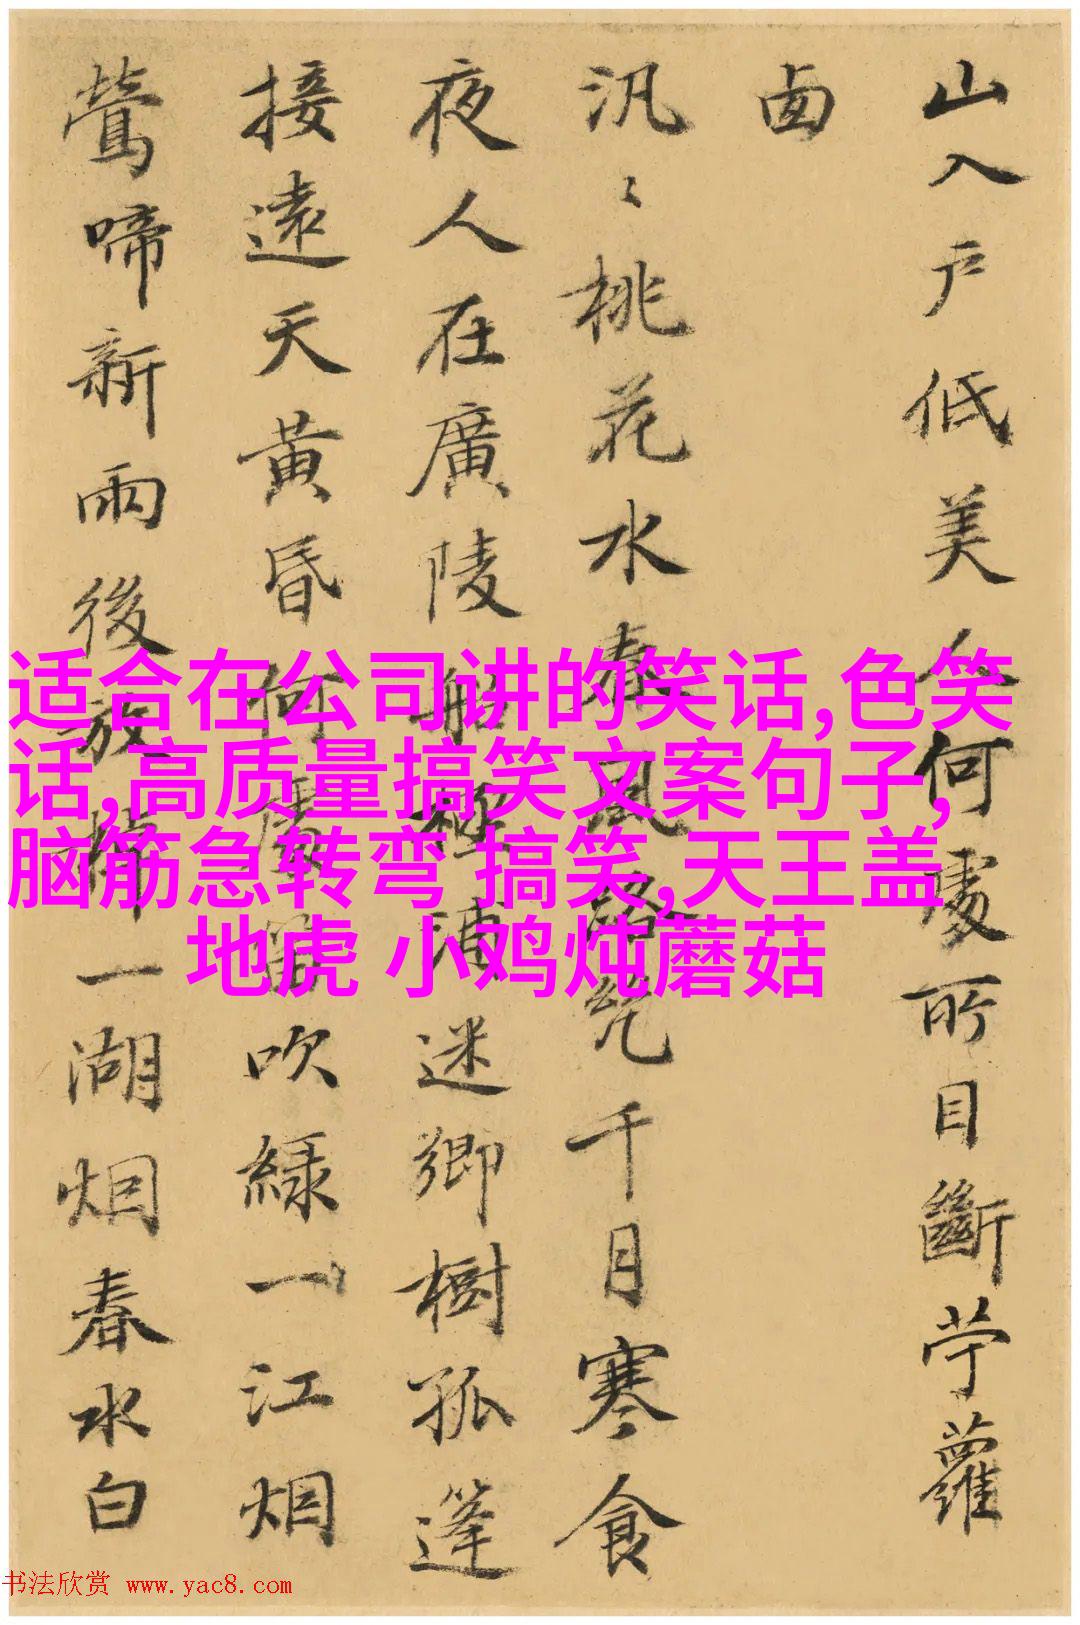 山入戶低美人何處所目斷苧蘿
汎〻桃花水春風路絶千月寒食
夜人在廣陵船極浦迷鄉樹孤篷
接遠天黃昏何處笛吹綠一江烟
鶯啼新雨後放棹一湖烟春水白
适合在公司讲的笑话,色笑
话,高质量搞笑文案句子,
脑筋急转弯 搞笑,天王盖
地虎 小鸡炖蘑菇
书法欣赏 www.yac8.com